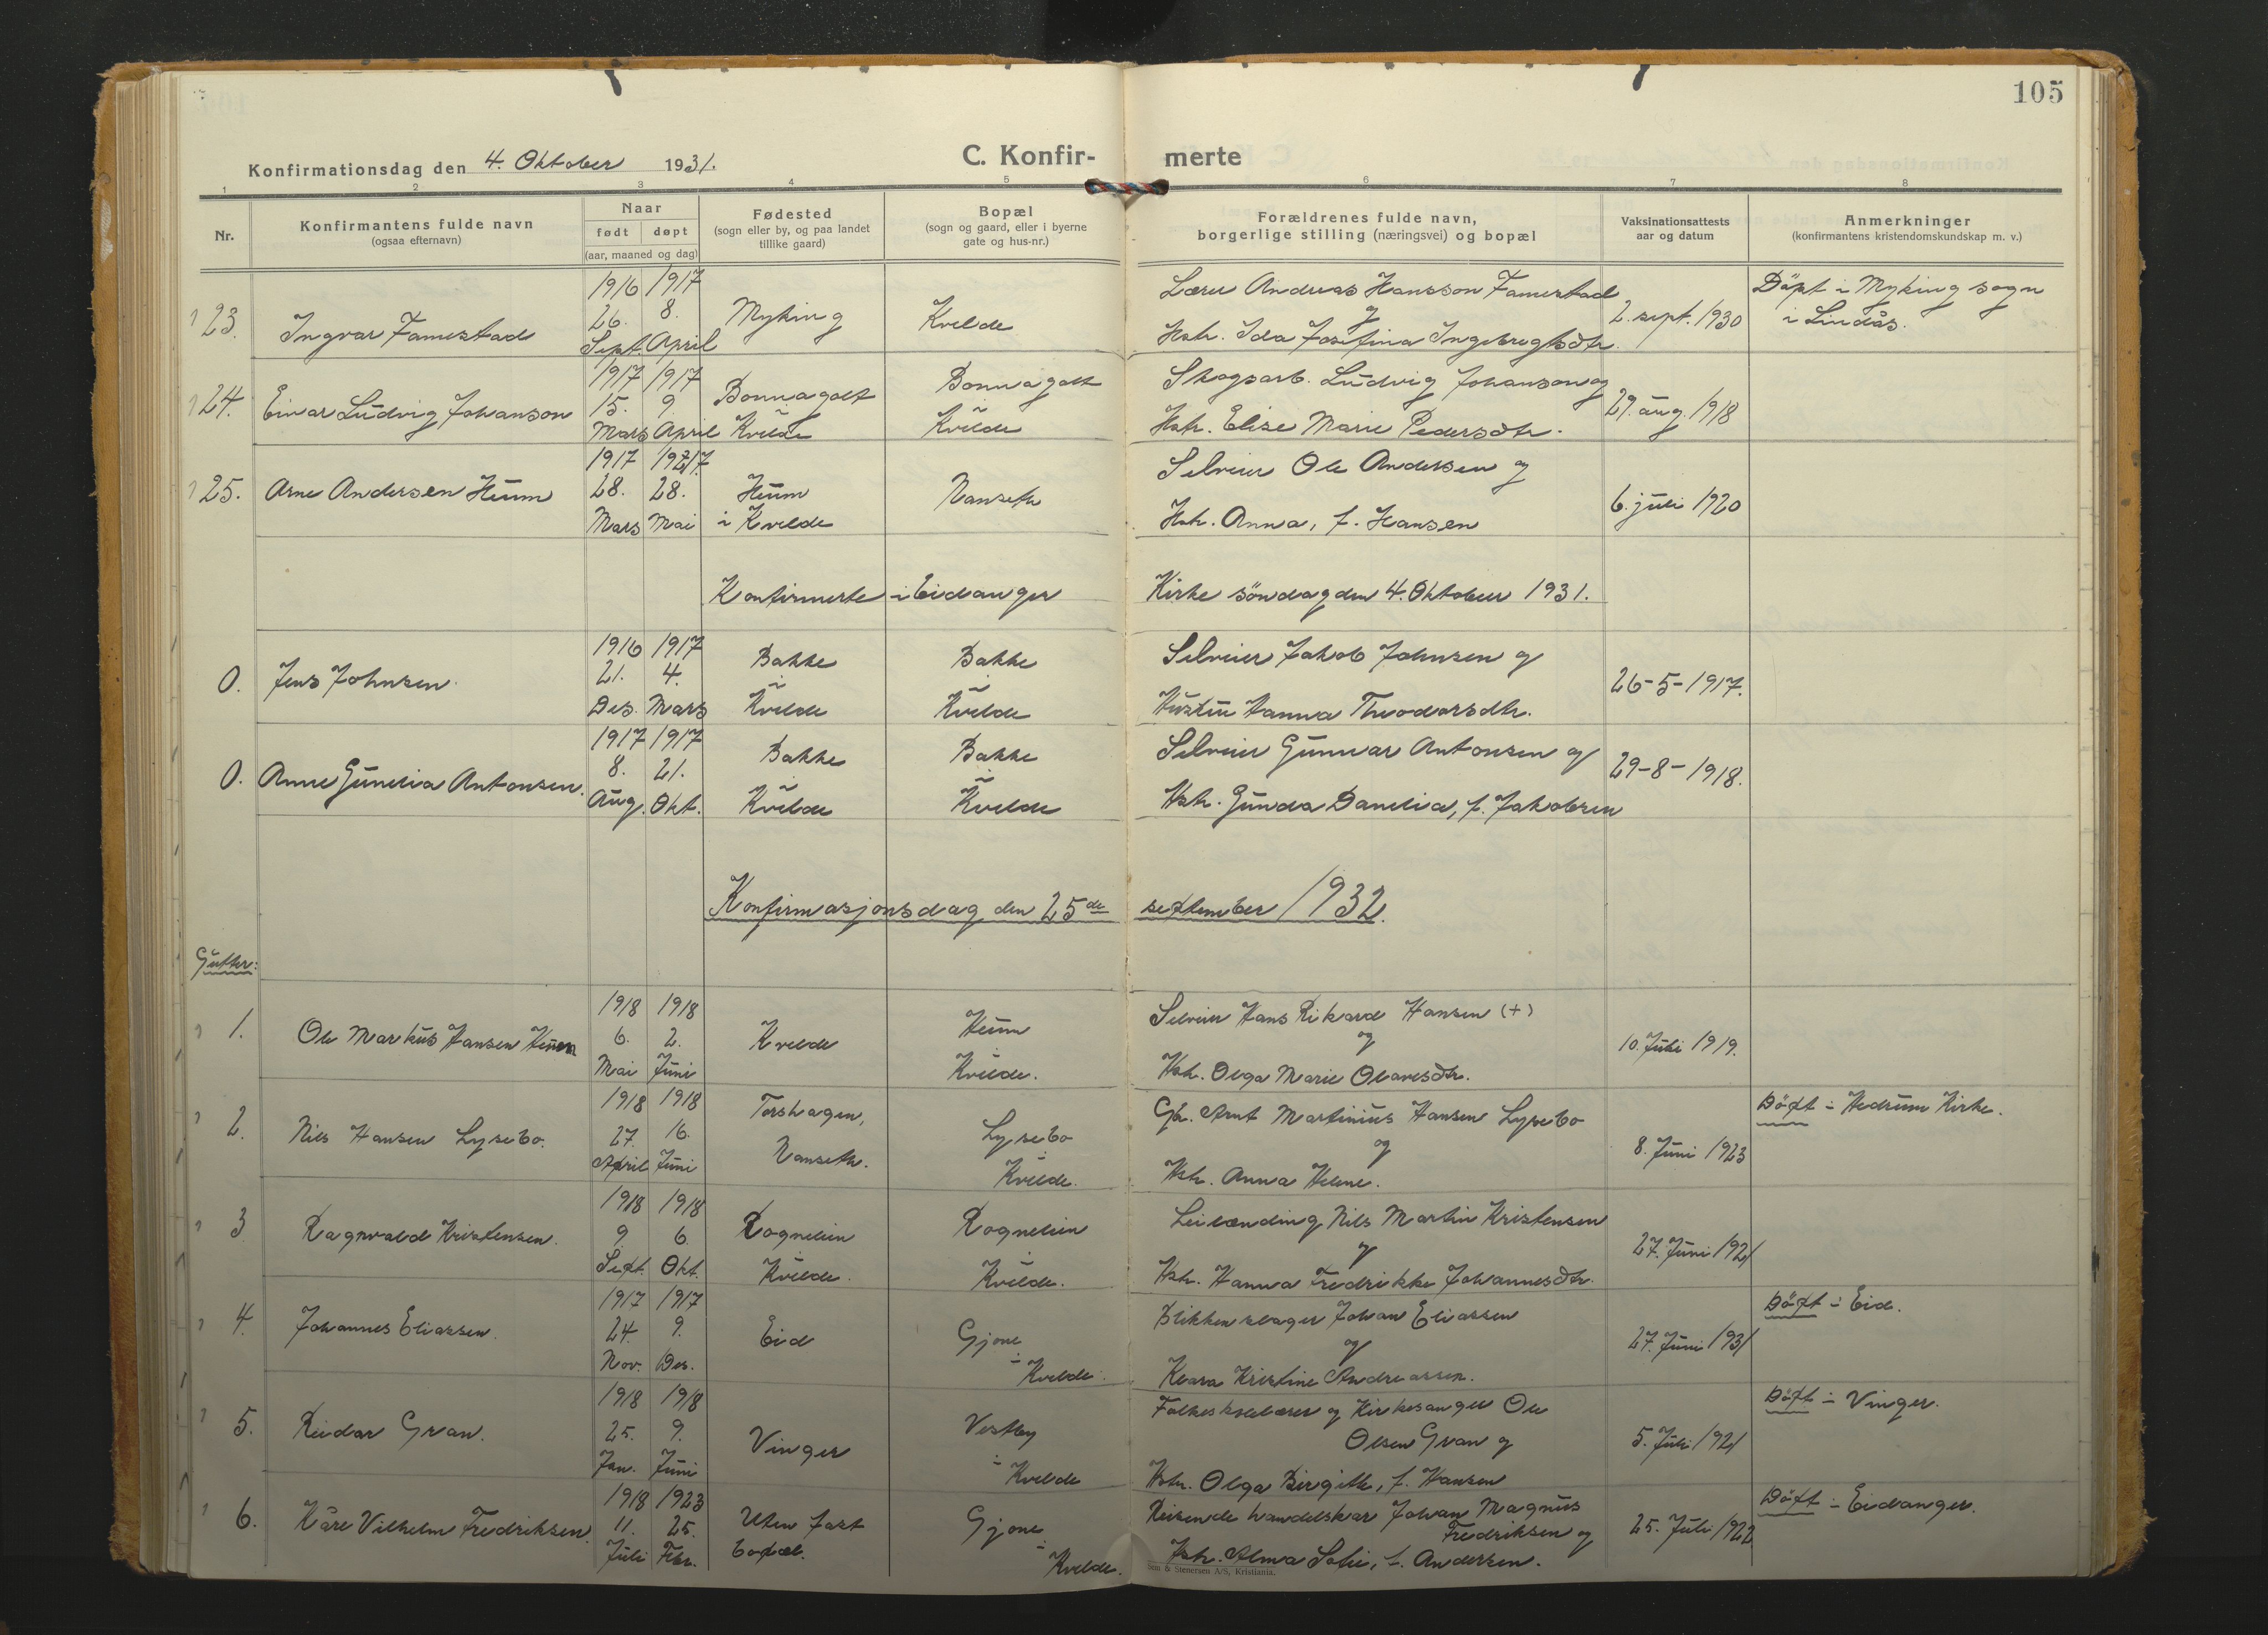 105
Konfirmationsdag den 4. Oktober 1931.
C. Konfir- merte
1 2 3 4 5 6 7 8
Nr.
Konfirmantens fulde navn
(ogsaa efternavn)
Naar
født døpt
(aar, maaned og dag)
Fødested
(sogn eller by, og paa landet
tillike gaard)
Bopæl
(sogn og gaard, eller i byerne
gate og hus-nr.)
Forældrenes fulde navn,
borgerlige stilling (næringsvei) og bopæl
Vaksinationsattests
aar og datum
Anmerkninger
(konfirmantens kristendomskundskap m. v.)
23. Ingvar Famestad
1916 1917
26. 8.
Sept. April
Myking
Kvelde
Lærer Andreas Hansson Famestad
og
Hstr. Ida Josefina Ingebregtsdtr.
2. sept. 1930
Døpt i Myking sogn
i Lindås.
24. Einar Ludvig Johanson
1917 1917
15. 9
Mars April
Bonnagolt
i
Kvelde
Bonnagolt
i
Kvelde
Skogsarb. Ludvig Johanson og
Hstr. Elise Marie Pedersdtr.
29. aug. 1918
25. Arne Andersen Heum
1917 1917
28. 28.
Mars Mai
Heum
i Kvelde
Nanseth
Selveier Ole Andersen og
Hstr. Anna, f. Hansen
6. juli 1920
Konfirmerte i Eidanger Kirke söndag den 4. Oktober 1931.
0. Jens Johnsen.
1916 1917
21. 4.
Des. Mars
Bakke
i
Kvelde
Bakke
i
Kvelde
Selveier Jakob Johnsen og
Hustru Hanna Theodorsdtr.
26-5-1917.
0. Anne Gunelia Antonsen.
1917 1917
8. 21.
Aug. Okt.
Bakke
i
Kvelde
Bakke
i
Kvelde
Selveier Gunnar Antonsen og
Hstr. Gunda Danelia, f. Jakobsen
29-8-1918.
Konfirmasjonsdag den 25de september 1932.
Gutter:
1. Ole Markus Hansen Heum
1918 1918
6. 2.
Mai Juni
Kvelde
Heum
i
Kvelde.
Selveier Hans Rikard Hansen (+)
og
Hstr. Olga Marie Olavesdtr.
10. Juli 1919.
2. Nils Hansen Lysebo.
1918 1918
27. 16.
April Juni
Torshagen,
Nanseth.
Lysebo
i
Kvelde.
Gbr. Arnt Martinius Hansen Lysebo
og
Hstr. Anna Helene.
8. Juni 1923
Döpt i Hedrum Kirke.
3 Ragnvald Kristensen.
1918 1918
9 6.
Sept. Okt.
Rognelien
i
Kvelde.
Rognelien
i
Kvelde.
Leilænding Nils Martin Kristensen
og
Hstr. Hanna Fredrikke Johannesdtr.
27. Juni 1921
4. Johannes Eliassen.
1917 1917
24. 9.
Nov. Des.
Eid
Gjone
i
Kvelde.
Blikkenslager Johan Eliassen
og
Klara Kristine Andreassen.
27. Juni 1931
Döpt i Eid.
5. Reidar Gran.
1918 1918
25. 9.
Jan. Juni
Vinger
Vestby
i
Kvelde
Folkeskolelærer og Kirkesanger Ole
Olsen Gran og
Hstr. Olga Birgitte, f. Hansen
5. Juli 1921
Döpt i Vinger.
6. Kåre Vilhelm Fredriksen.
1918 1923
11. 25.
Juli Febr.
Uten fast
bopæl.
Gjone
i
Kvelde.
Reisende handelskar Johan Magnus
Fredriksen og
Hstr. Alma Sofie, f. Andersen.
25. Juli 1922
Döpt i Eidanger.
Sem & Stenersen A/S, Kristiania.